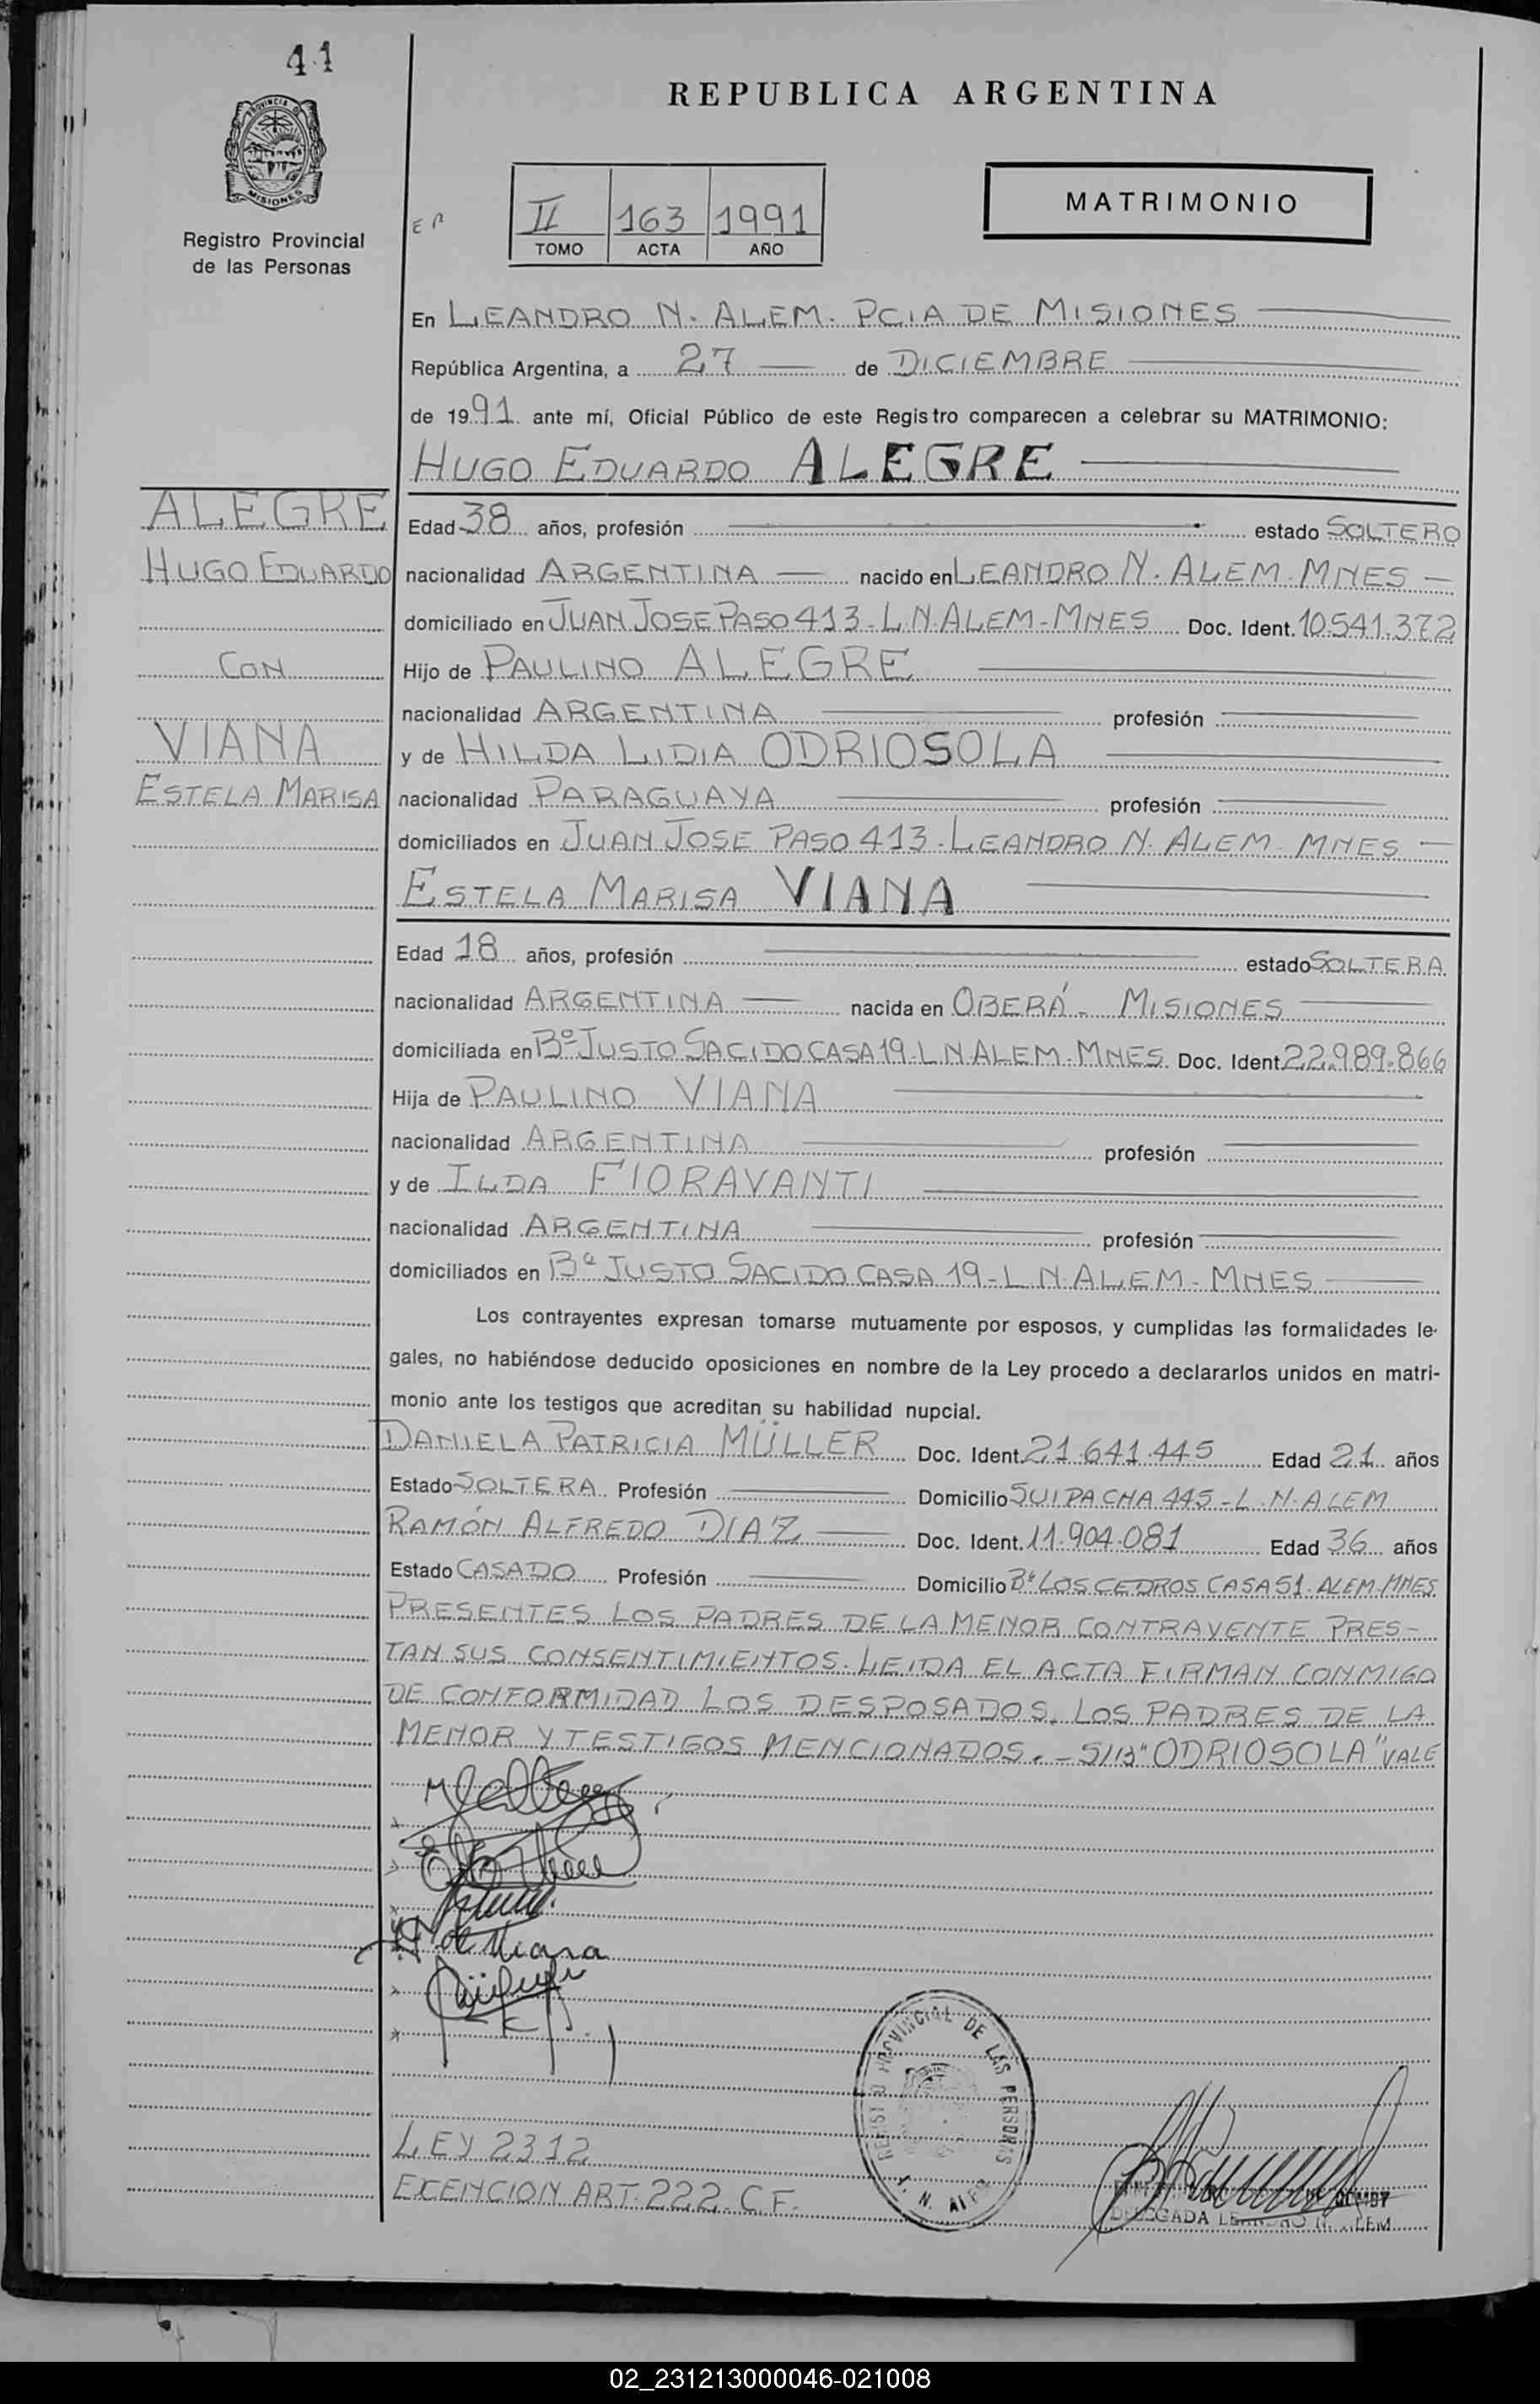 41
PROVINCIA DE
MISIONES
Registro Provincial
de las Personas
REPUBLICA ARGENTINA
II 163 1991
TOMO ACTA AÑO
MATRIMONIO
En LEANDRO N. ALEM. PCIA DE MISIONES
República Argentina, a 27 de DICIEMBRE
de 1991 ante mí, Oficial Público de este Registro comparecen a celebrar su MATRIMONIO:
HUGO EDUARDO ALEGRE
ALEGRE
HUGO EDUARDO
CON
VIANA
ESTELA MARISA
Edad 38 años, profesión estado SOLTERO
nacionalidad ARGENTINA nacido en LEANDRO N. ALEM-MNES
domiciliado en JUAN JOSE PASO 413-L.N.ALEM-MNES Doc. Ident. 10.541.372
Hijo de PAULINO ALEGRE
nacionalidad ARGENTINA profesión
y de HILDA LIDIA ODRIOSOLA
nacionalidad PARAGUAYA profesión
domiciliados en JUAN JOSE PASO 413-LEANDRO N. ALEM-MNES
ESTELA MARISA VIANA
Edad 18 años, profesión estado SOLTERA
nacionalidad ARGENTINA nacida en OBERÁ - MISIONES
domiciliada en Bº JUSTO SACIDO CASA 19-L N ALEM-MNES. Doc. Ident. 22.989.866
Hija de PAULINO VIANA
nacionalidad ARGENTINA profesión
y de ILDA FIORAVANTI
nacionalidad ARGENTINA profesión
domiciliados en Bº JUSTO SACIDO CASA 19-L N. ALEM-MNES
Los contrayentes expresan tomarse mutuamente por esposos, y cumplidas las formalidades le-
gales, no habiéndose deducido oposiciones en nombre de la Ley procedo a declararlos unidos en matri-
monio ante los testigos que acreditan su habilidad nupcial.
DANIELA PATRICIA MÜLLER Doc. Ident. 21.641.445 Edad 21 años
Estado SOLTERA Profesión Domicilio SUIPACHA 445-L.N.ALEM
RAMÓN ALFREDO DIAZ Doc. Ident. 11.904.081 Edad 36 años
Estado CASADO Profesión Domicilio Bº LOS CEDROS CASA 51-ALEM-MNES
PRESENTES LOS PADRES DE LA MENOR CONTRAYENTE PRES-
TAN SUS CONSENTIMIENTOS. LEIDA EL ACTA FIRMAN CONMIGO
DE CONFORMIDAD LOS DESPOSADOS, LOS PADRES DE LA
MENOR Y TESTIGOS MENCIONADOS. - S/B "ODRIOSOLA" VALE
REGISTRO PROVINCIAL DE LAS PERSONAS
L. N. ALEM
LEY 2312
EXENCION ART. 222. C.F.
DELEGADA LEANDRO N. ALEM
02_231213000046-021008